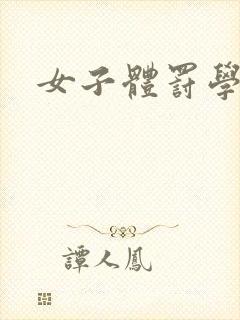 女子體罰學
譚人鳳